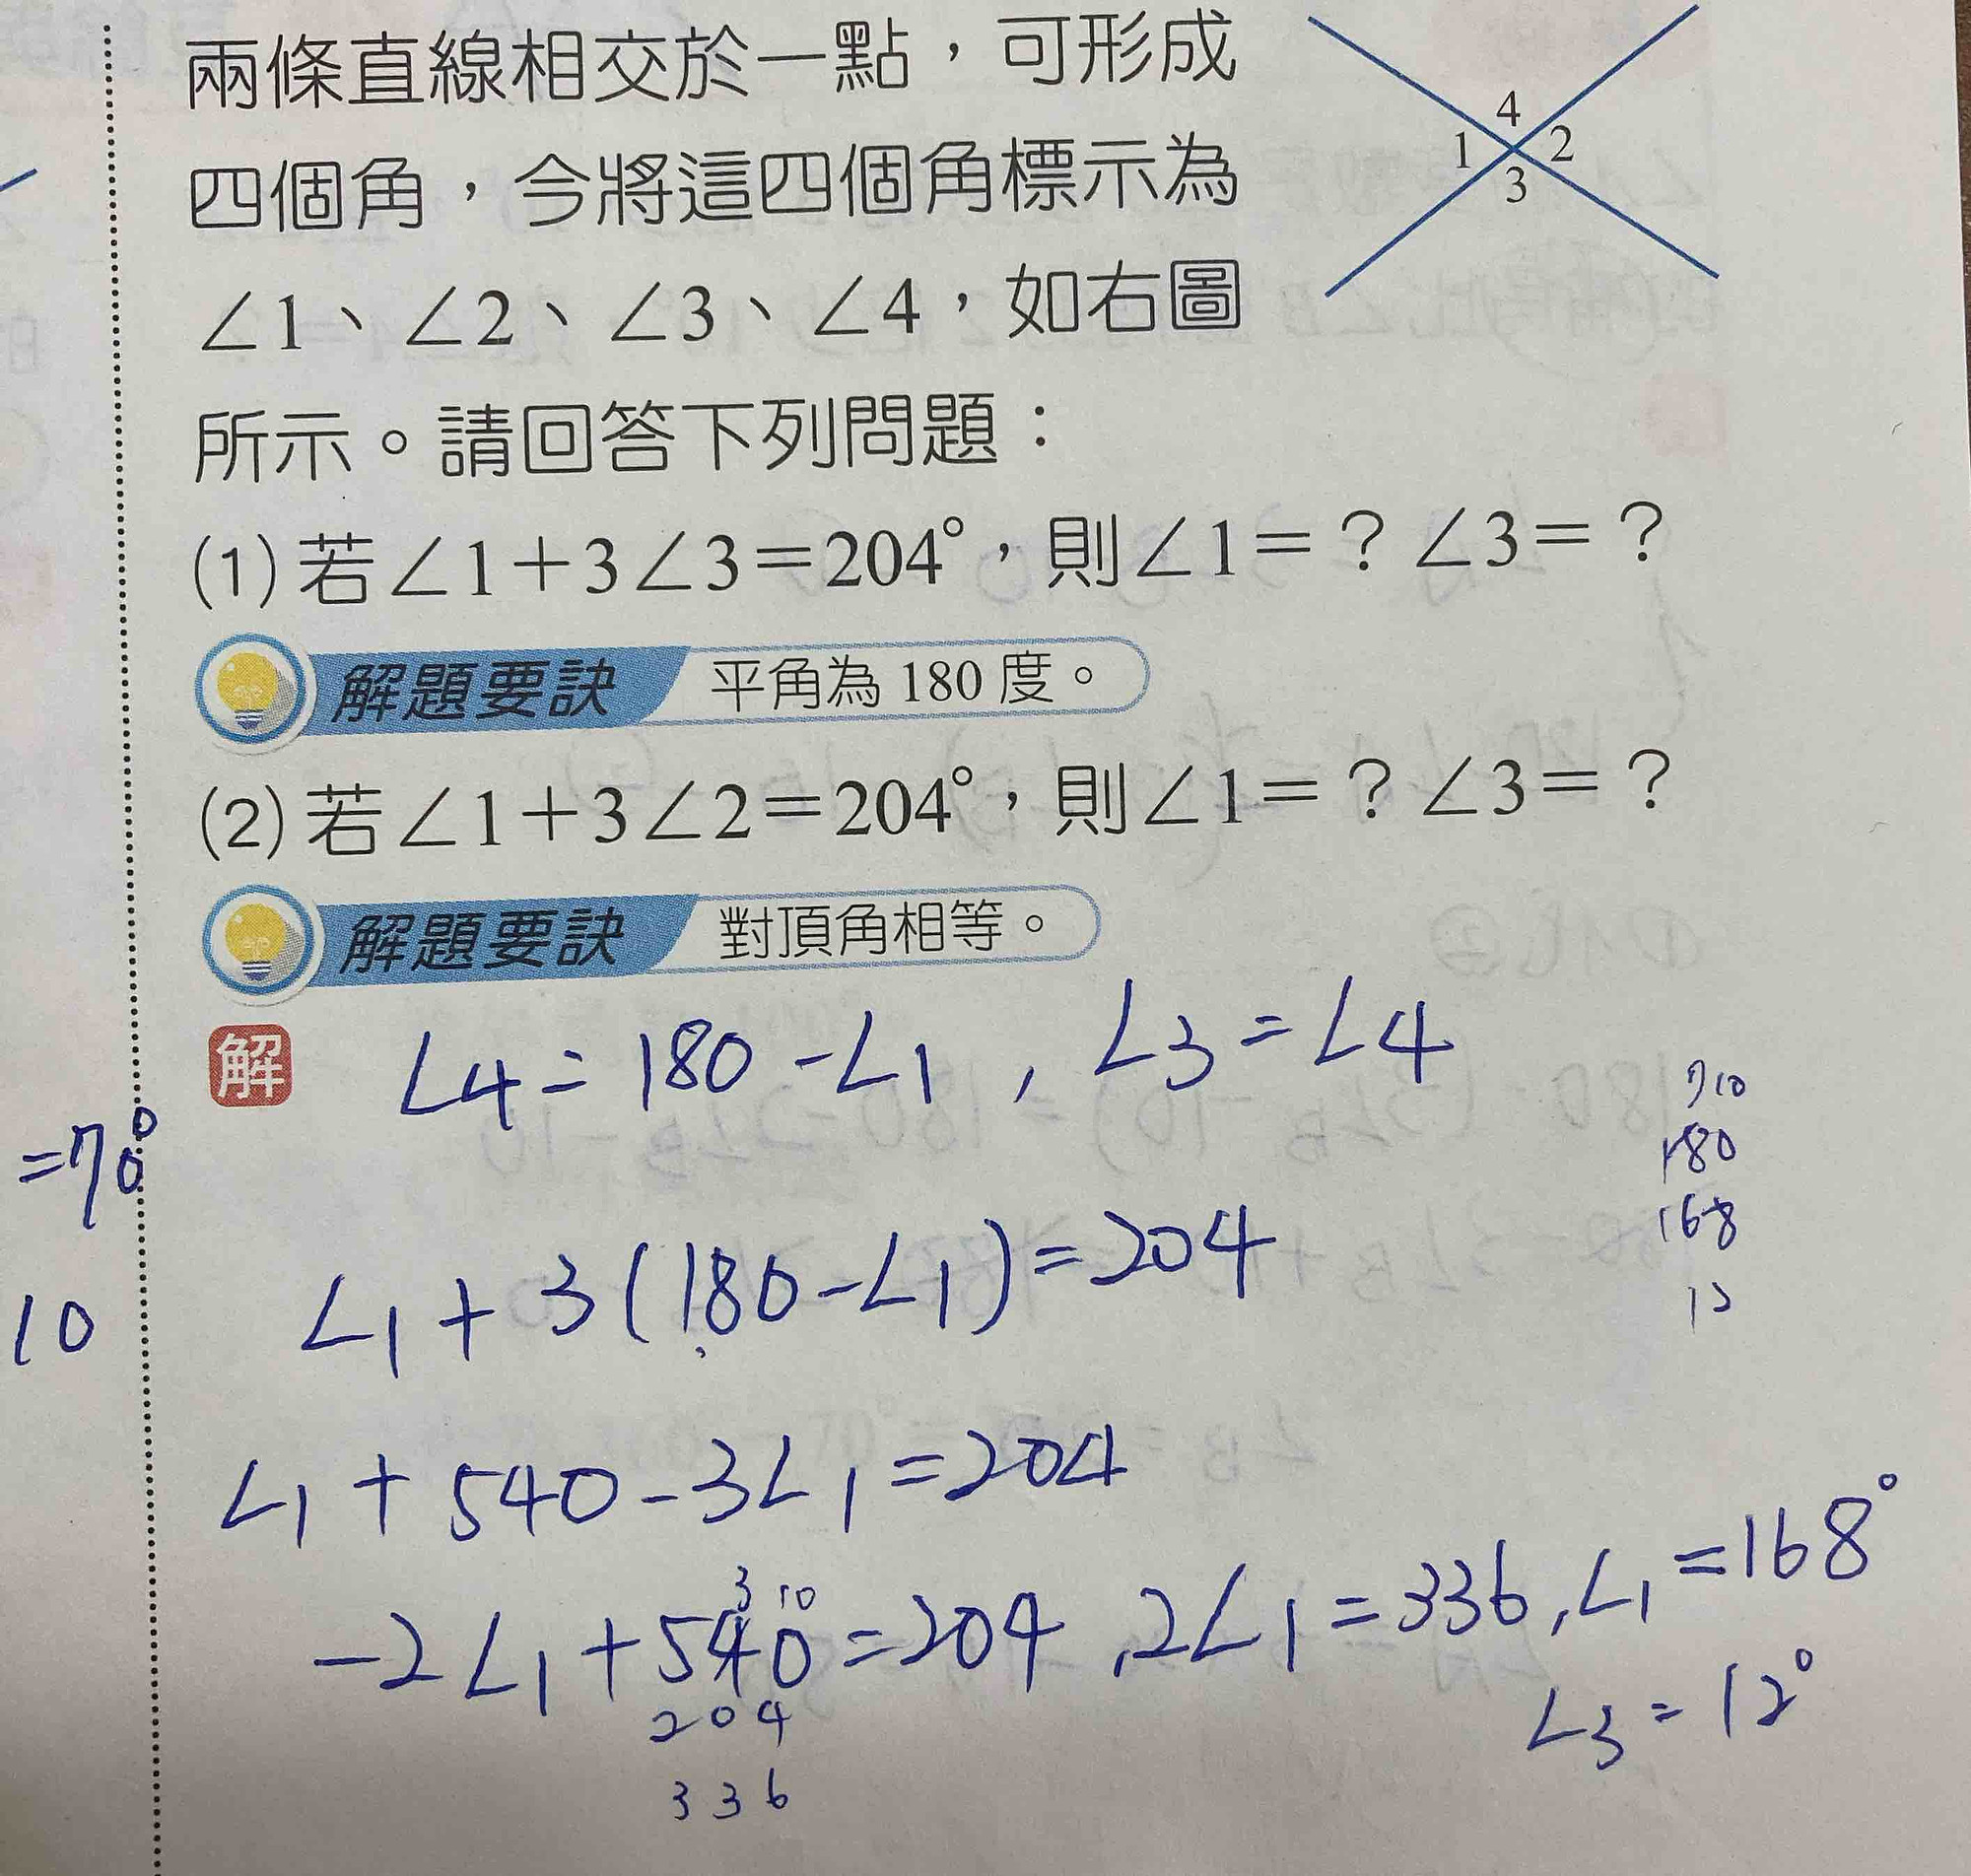 兩條直線相交於一點，可形成
四個角，今將這四個角標示為
∠1、∠2、∠3、∠4，如右圖
所示。請回答下列問題：
4
1 2
3
(1) 若∠1＋3∠3＝204°，則∠1＝？∠3＝？
解題要訣 平角為 180 度。
(2) 若∠1＋3∠2＝204°，則∠1＝？∠3＝？
解題要訣 對頂角相等。
解 ∠4=180-∠1, ∠3=∠4
=70°
10
∠1+3(180-∠1)=204
∠1+540-3∠1=204
3 10
-2∠1+540=204, 2∠1=336, ∠1=168°
204
336
∠3=12°
7 10
180
168
12